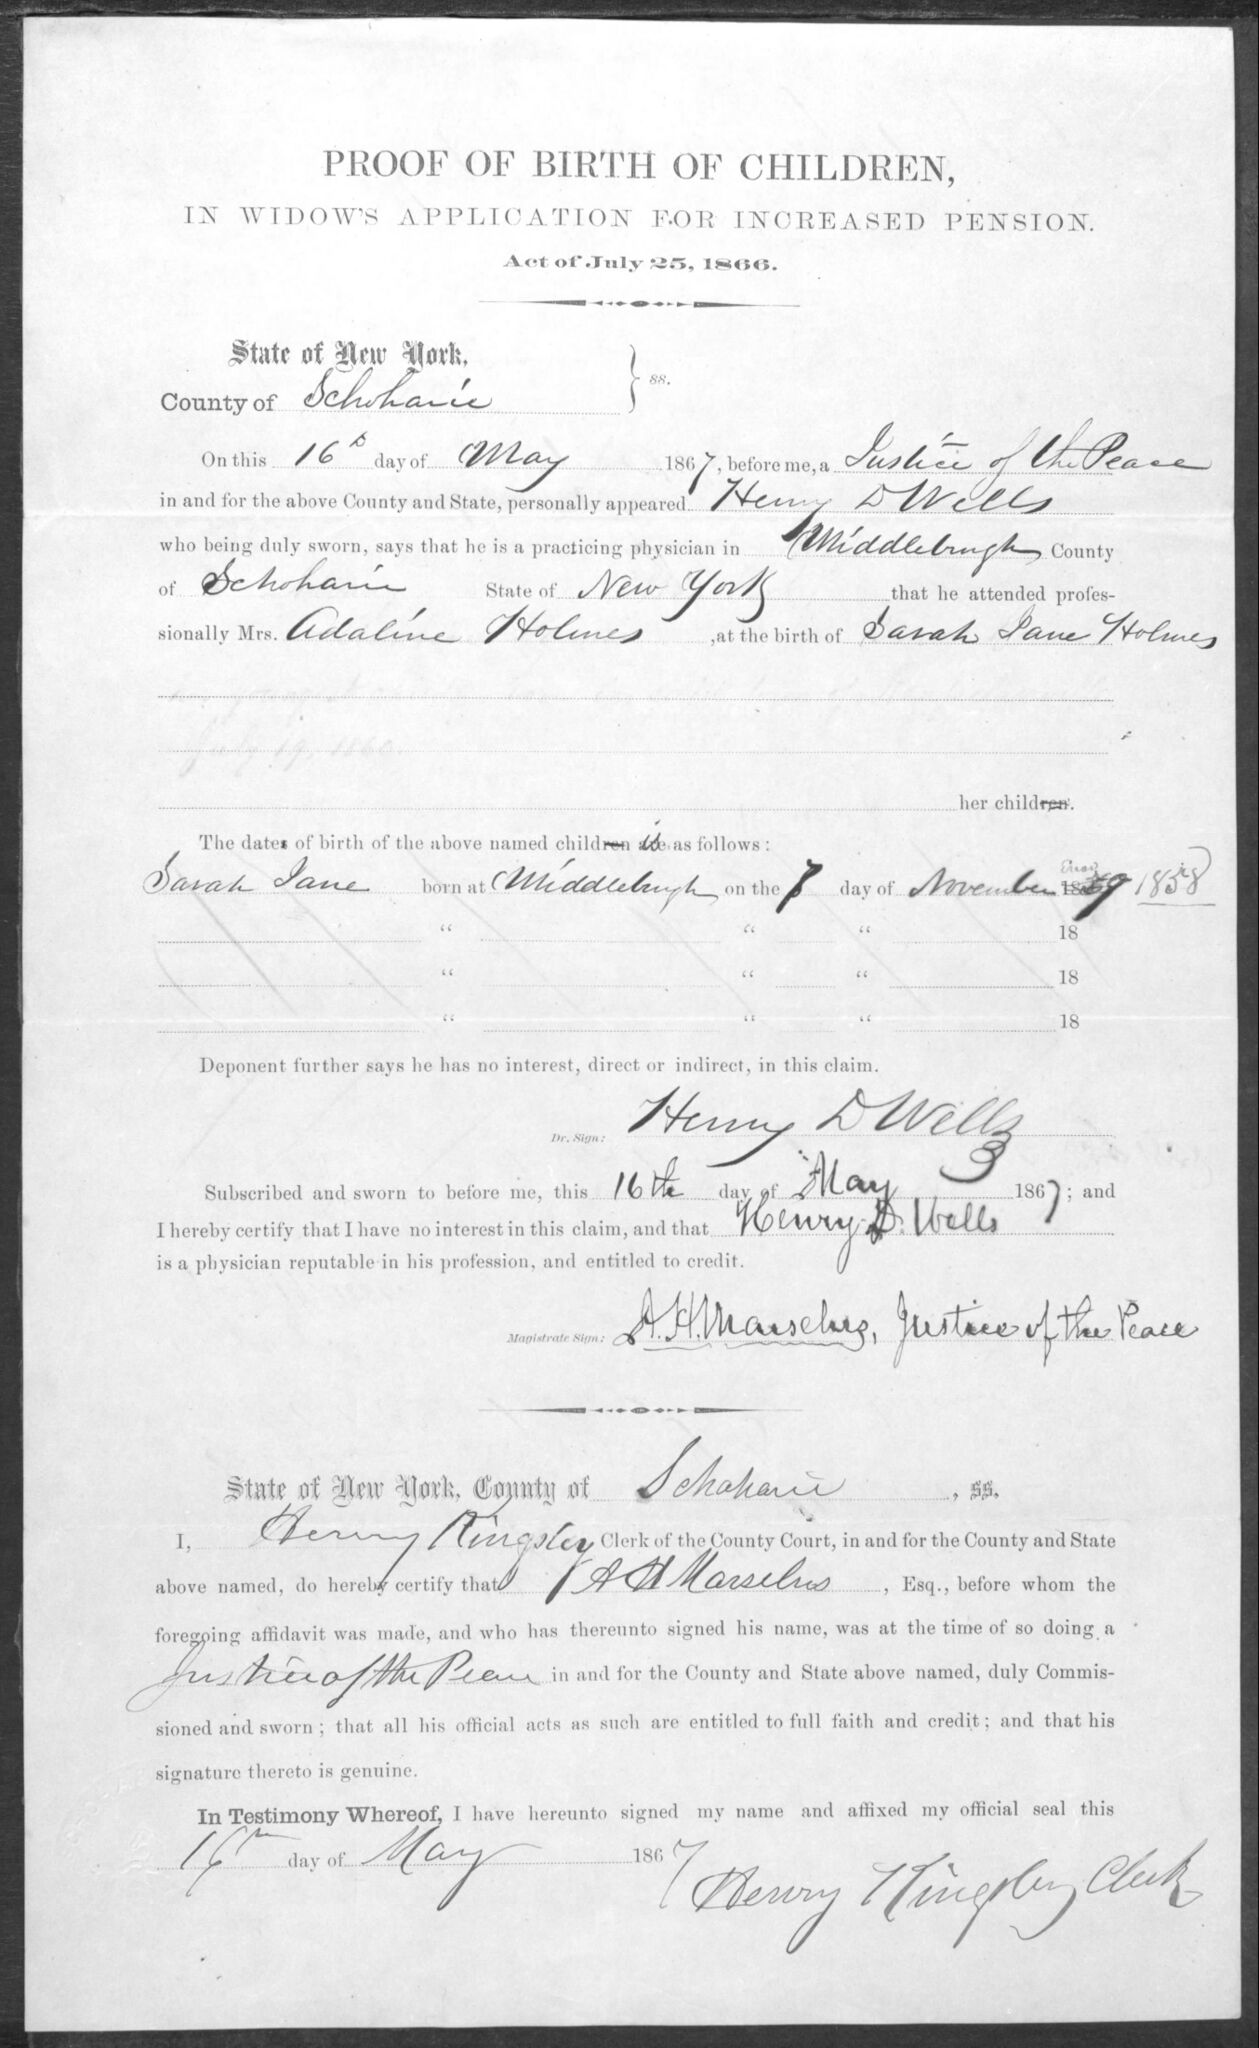 PROOF OF BIRTH OF CHILDREN,
IN WIDOW'S APPLICATION FOR INCREASED PENSION.
Act of July 25, 1866.
State of New York,
County of Schoharie } ss.
On this 16th day of May 1867, before me, a Justice of the Peace
in and for the above County and State, personally appeared Henry D Wells
who being duly sworn, says that he is a practicing physician in Middleburgh County
of Schoharie State of New York that he attended profes-
sionally Mrs. Adaline Holmes, at the birth of Sarah Jane Holmes
July 19, 1860.
her children.
The dates of birth of the above named children are is as follows:
Sarah Jane born at Middleburgh on the 7 day of November 1859 1858
" " " 18
" " " 18
" " " 18
Deponent further says he has no interest, direct or indirect, in this claim.
Dr. Sign: Henry D Wells
3
Subscribed and sworn to before me, this 16th day of May 1867; and
I hereby certify that I have no interest in this claim, and that Henry D. Wells
is a physician reputable in his profession, and entitled to credit.
Magistrate Sign: A. H. Marselus, Justice of the Peace
State of New York, County of Schoharie, ss.
I, Henry Kingsley Clerk of the County Court, in and for the County and State
above named, do hereby certify that A H Marselus, Esq., before whom the
foregoing affidavit was made, and who has thereunto signed his name, was at the time of so doing a
Justice of the Peace in and for the County and State above named, duly Commis-
sioned and sworn; that all his official acts as such are entitled to full faith and credit; and that his
signature thereto is genuine.
In Testimony Whereof, I have hereunto signed my name and affixed my official seal this
16th day of May 1867
Henry Kingsley Clerk